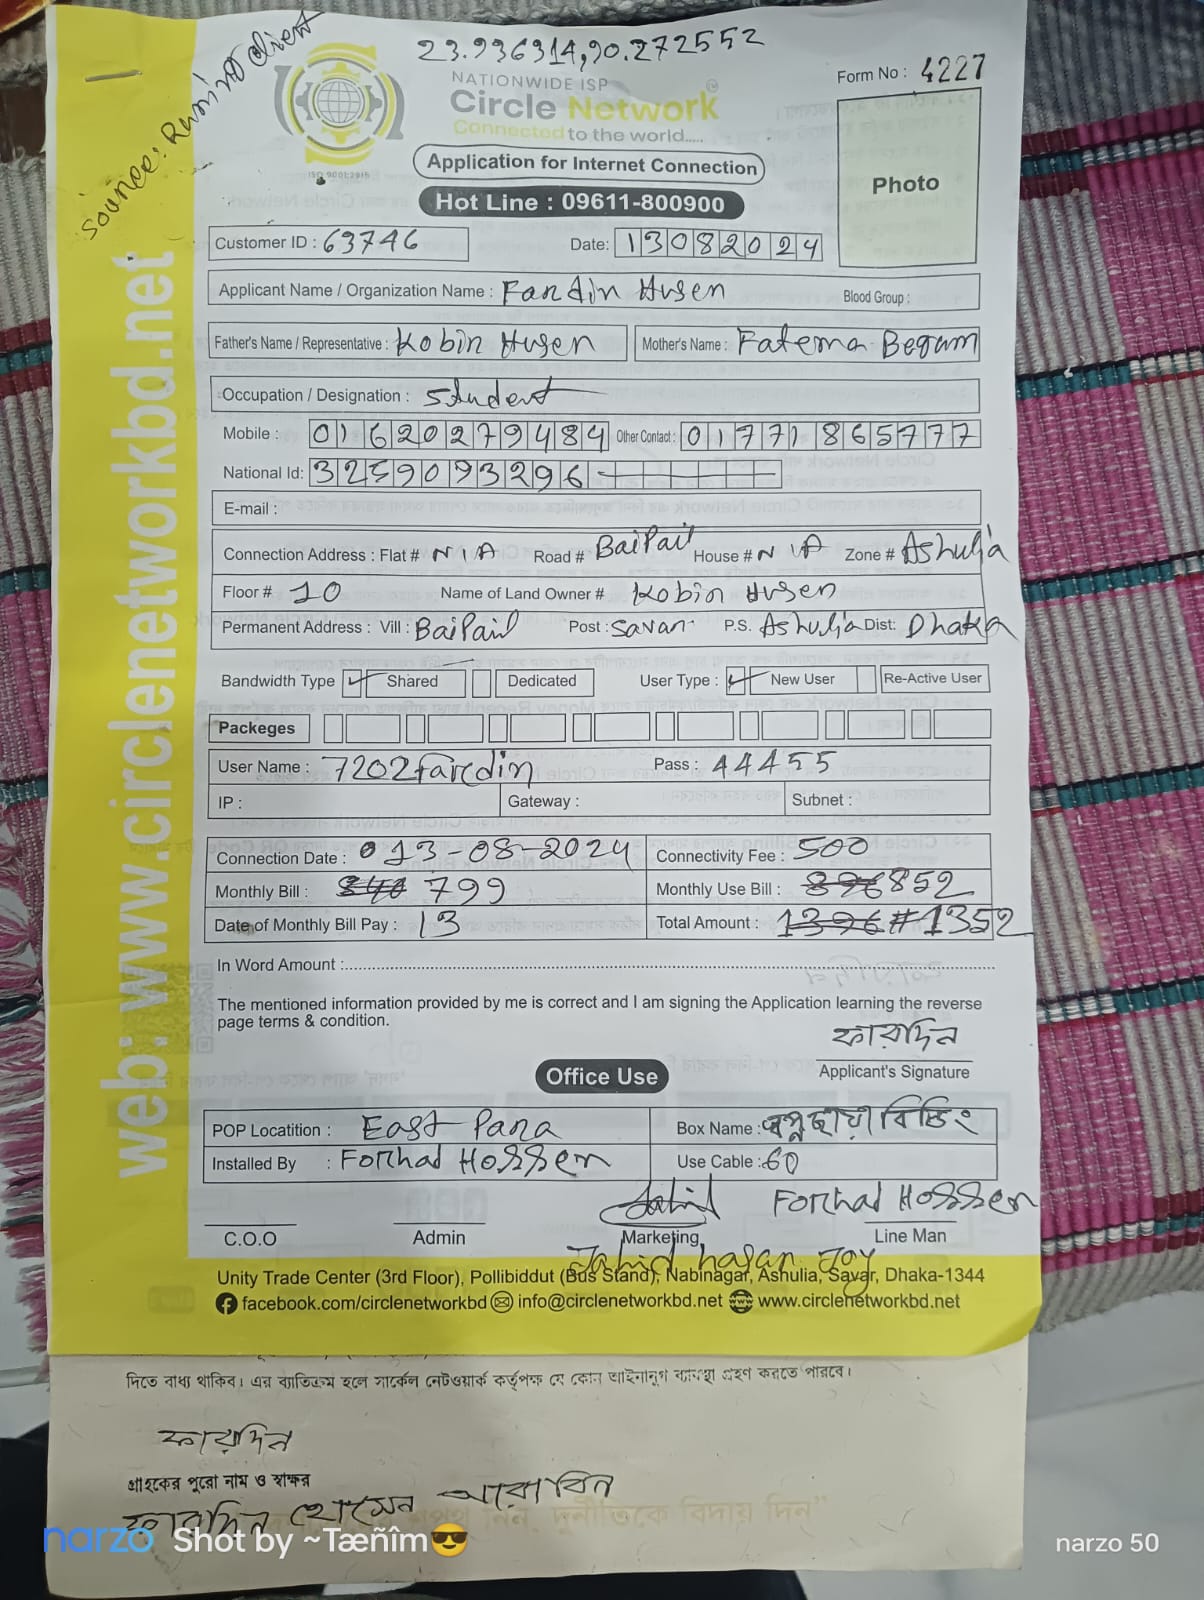 23.936314,90.272552
Source: Running client
NATIONWIDE ISP
Circle Network
Connected to the world.....
ISO 9001:2015
Form No : 4227
Photo
Application for Internet Connection
Hot Line : 09611-800900
Customer ID : 63746 Date: 13082024
Applicant Name / Organization Name : Fardin Husen Blood Group :
Father's Name / Representative : Kobin Husen Mother's Name : Fatema Begum
Occupation / Designation : Student
Mobile : 01620279484 Other Contact : 01771865777
National Id: 3259093296
E-mail :
Connection Address : Flat # N/A Road # BaiPail House # N/A Zone # Ashulia
Floor # 10 Name of Land Owner # Kobin Husen
Permanent Address : Vill : BaiPail Post : Savar P.S. Ashulia Dist: Dhaka
Bandwidth Type Shared Dedicated User Type : New User Re-Active User
Packeges
User Name : 7202fardin Pass : 44455
IP : Gateway : Subnet :
Connection Date : 013-08-2024 Connectivity Fee : 500
Monthly Bill : 840 799 Monthly Use Bill : 896 852
Date of Monthly Bill Pay : 13 Total Amount : 1396 #1352
In Word Amount :
The mentioned information provided by me is correct and I am signing the Application learning the reverse
page terms & condition.
ফারদিন
Applicant's Signature
Office Use
POP Locatition : East Para Box Name : স্বপ্নছায়া বিল্ডিং
Installed By : Forhad Hossen Use Cable : 60
Jahid Forhad Hossen
C.O.O Admin Marketing Line Man
Jahid hasan Joy
Unity Trade Center (3rd Floor), Pollibiddut (Bus Stand), Nabinagar, Ashulia, Savar, Dhaka-1344
facebook.com/circlenetworkbd info@circlenetworkbd.net www.circlenetworkbd.net
web: www.circlenetworkbd.net
দিতে বাধ্য থাকিব। এর ব্যতিক্রম হলে সার্কেল নেটওয়ার্ক কর্তৃপক্ষ যে কোন আইনানুগ ব্যবস্থা গ্রহণ করতে পারবে।
ফারদিন
গ্রাহকের পুরো নাম ও স্বাক্ষর
ফারদিন হোসেন আরোবিন
শপথ নিন, দুর্নীতিকে বিদায় দিন"
narzo Shot by ~Tæñîm😎 narzo 50